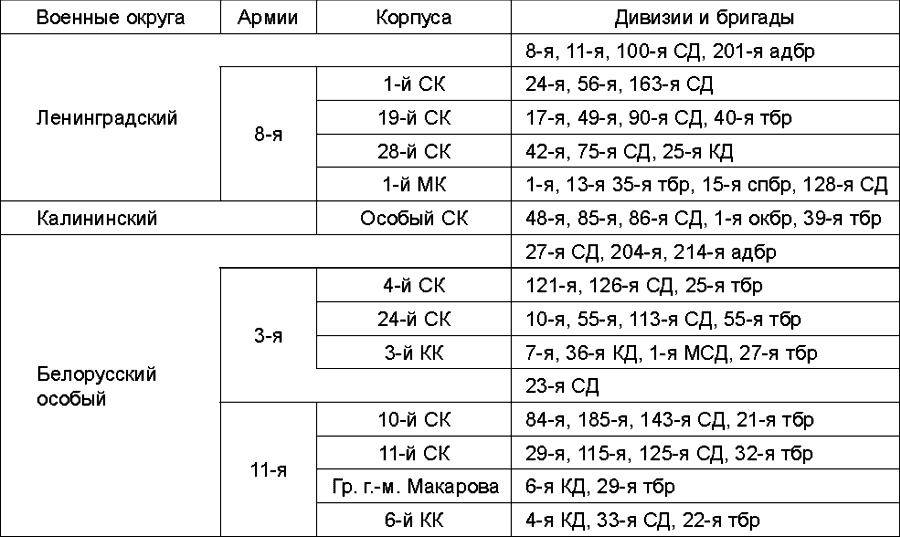 Военные округа Армии Корпуса Дивизии и бригады
8-я, 11-я, 100-я СД, 201-я адбр
Ленинградский
8-я
1-й СК 24-я, 56-я, 163-я СД
19-й СК 17-я, 49-я, 90-я СД, 40-я тбр
28-й СК 42-я, 75-я СД, 25-я КД
1-й МК 1-я, 13-я 35-я тбр, 15-я спбр, 128-я СД
Калининский Особый СК 48-я, 85-я, 86-я СД, 1-я окбр, 39-я тбр
Белорусский
особый
27-я СД, 204-я, 214-я адбр
3-я
4-й СК 121-я, 126-я СД, 25-я тбр
24-й СК 10-я, 55-я, 113-я СД, 55-я тбр
3-й КК 7-я, 36-я КД, 1-я МСД, 27-я тбр
23-я СД
11-я
10-й СК 84-я, 185-я, 143-я СД, 21-я тбр
11-й СК 29-я, 115-я, 125-я СД, 32-я тбр
Гр. г.-м. Макарова 6-я КД, 29-я тбр
6-й КК 4-я КД, 33-я СД, 22-я тбр